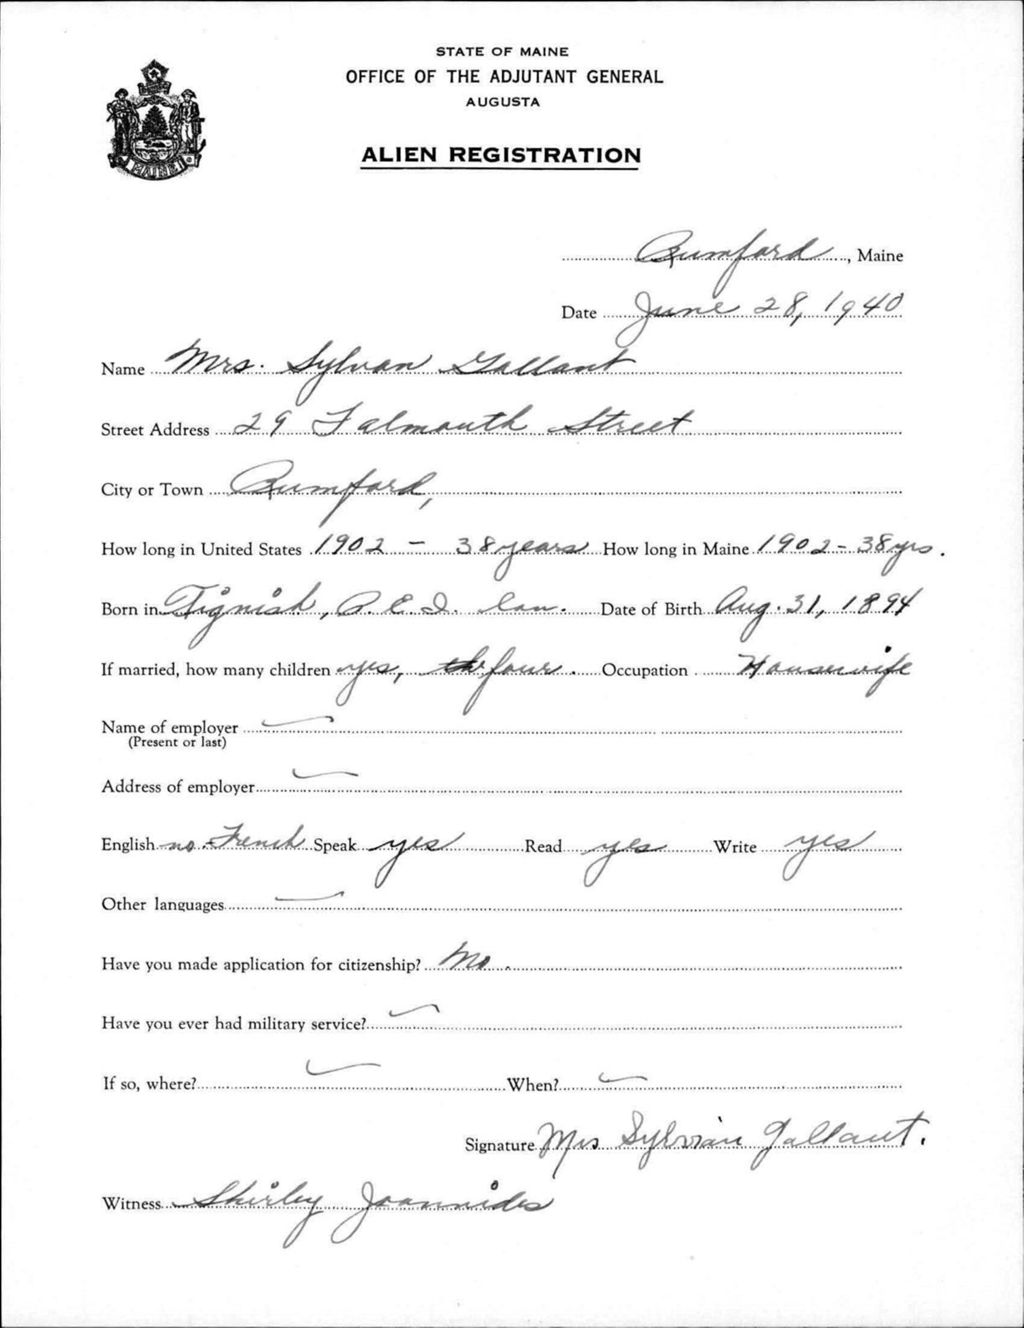 STATE OF MAINE
OFFICE OF THE ADJUTANT GENERAL
AUGUSTA
ALIEN REGISTRATION
MAINE
Rumford, Maine
Date June 28, 1940
Name Mrs. Sylvan Gallant
Street Address 29 Falmouth Street
City or Town Rumford,
How long in United States 1902 - 38 years How long in Maine 1902 - 38 yrs.
Born in Tignish, P. E. I. Can. Date of Birth Aug. 31, 1894
If married, how many children yes, four. Occupation Housewife
Name of employer
(Present or last)
Address of employer
English no - French Speak yes Read yes Write yes
Other languages
Have you made application for citizenship? No.
Have you ever had military service?
If so, where? When?
Signature Mrs Sylvian Gallant.
Witness Shirley Joannides